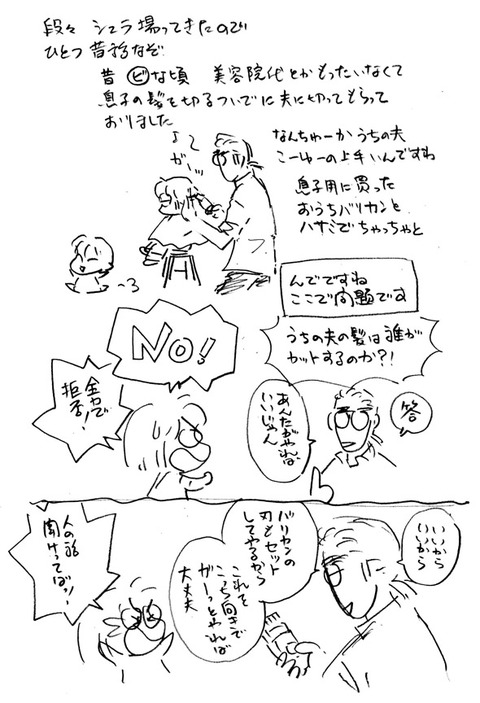 段々 シュラ場ってきたので
ひとつ昔話なぞ
昔 ビな頃 美容院代とかもったいなくて
息子の髪を切るついでに夫に切ってもらって
おりました
♪
ガー…
なんちゅーかうちの夫
こーゆーの上手いんですね
息子用に買った
おうちバリカンと
ハサミでちゃっちゃと
〜3
んでですね
ここで問題です
うちの夫の髪は誰が
カットするのか?!
答
あんたがやれば
いいじゃん
No!
全力で
拒否!
いいから
いいから
バリカンの
刃もセット
してやるから
これを
こっち向きで
ガーっとやれば
大丈夫
人の話
聞けってばッ!